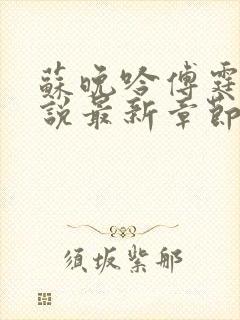 蘇晚吟傅霆
說最新章節
須坂紫那